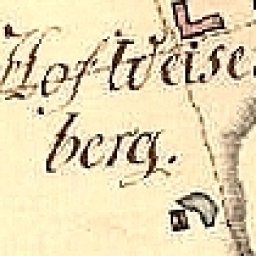 Hof Weise
berg.